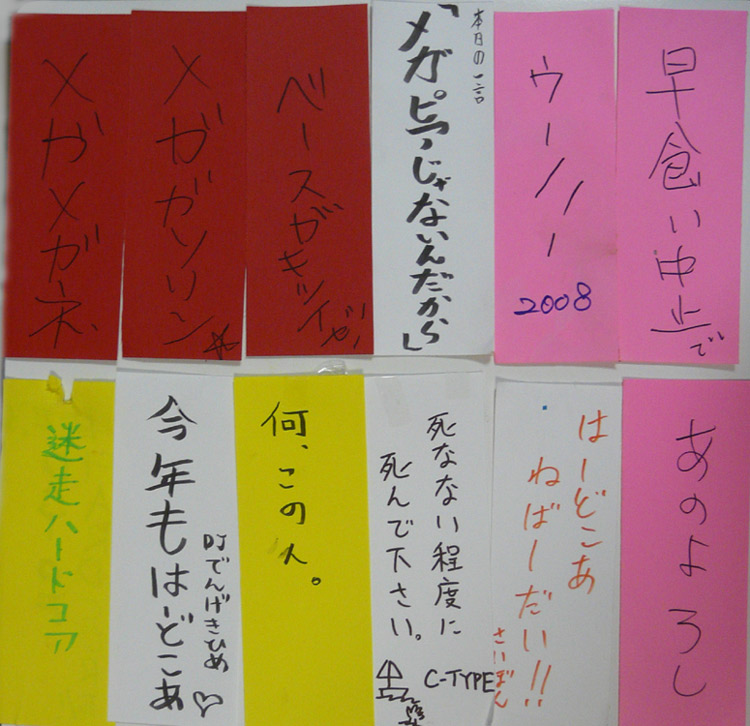 早食い中止で
ウーハー
2008
本日の一言
「メガピアじゃないんだから」
ベースがキツイぜ
メガガソリン
メガメガネ
あのよろし
はーどこあ
ねばーだい!!
さいぼん
死なない程度に
死んで下さい。
C-TYPE
何、この人。
今年もはーどこあ
DJでんげきひめ
迷走ハードコア